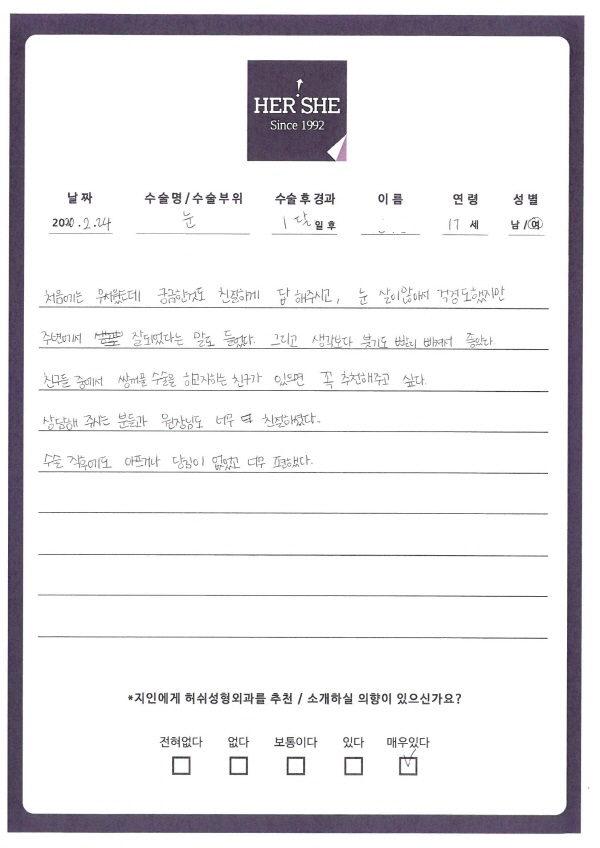 HER SHE
Since 1992
날짜 수술명/수술부위 수술 후 경과 이름 연령 성별
2020.2.24 눈 1달 일 후 17 세 남/여
처음에는 무서웠는데 궁금한것도 친절하게 답 해주시고, 눈 살이많아서 걱정도했지만
주변에서 잘되었다는 말도 들었다. 그리고 생각보다 붓기도 빨리 빠져서 좋았다.
친구들 중에서 쌍꺼풀 수술을 하고자하는 친구가 있으면 꼭 추천해주고 싶다.
상담해 주시는 분들과 원장님도 너무 친절하셨다.
수술 직후에도 아프거나 당김이 없었고 너무 편했다.
*지인에게 허쉬성형외과를 추천 / 소개하실 의향이 있으신가요?
전혀없다 없다 보통이다 있다 매우있다